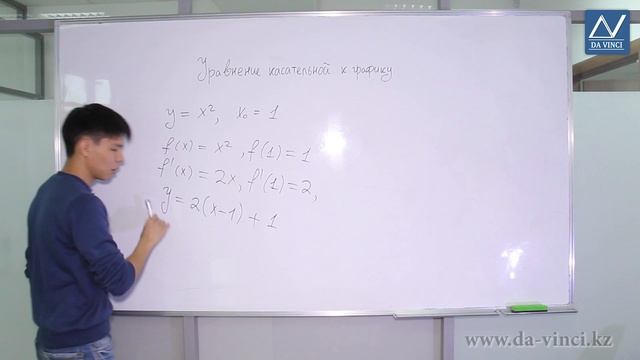 DA VINCI
Уравнение касательной к графику
y = x², x₀ = 1
f(x) = x², f(1) = 1
f'(x) = 2x, f'(1) = 2,
y = 2(x-1) + 1
www.da-vinci.kz